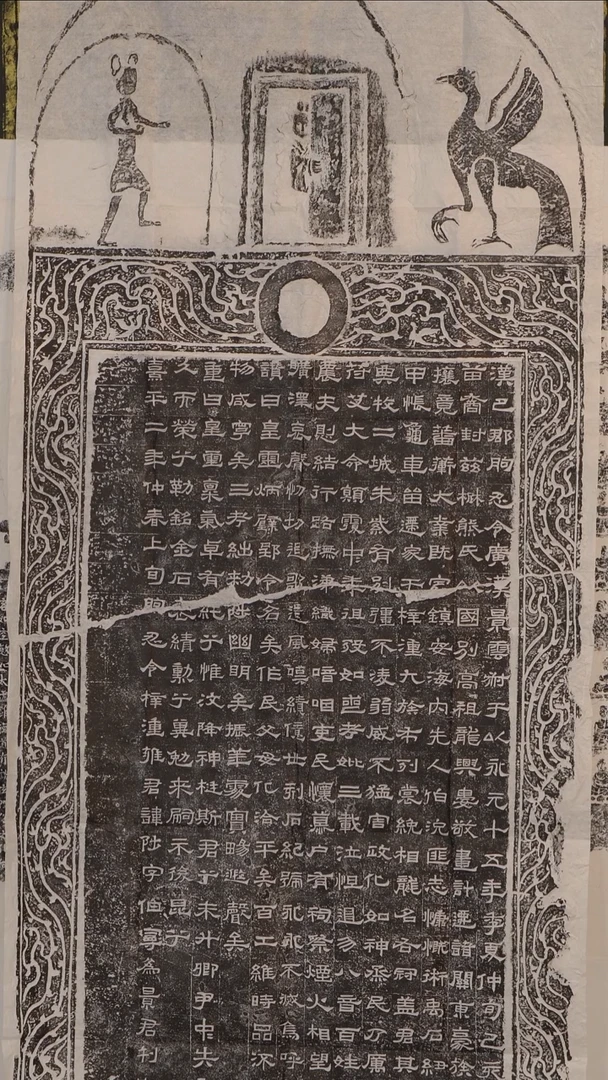 漢巴郡朐忍令廣漢景雲叔于以永元十五年季夏仲旬己亥
苗裔封茲楚熊氏以國別高祖龍興婁敬畫計遷諸關東豪族
攘竟蕃衛大業既定鎮安海內先人伯沇匪志慷慨術禹石紐
甲帳龜車留遷家于梓潼九族布列裳絻相襲名右冠蓋君其
典牧二城朱紫有別彊不凌弱威不猛害政化如神烝民乃厲
符艾大命顛覆中年徂歿如喪考妣三載泣怛遏勿八音百姓
農夫惻結行路撫涕織婦喑咽吏民懷慕戶有祠祭煙火相望
曠澤哀聲忉切追歌遺風嘆績億世刻石紀號永永不滅烏呼
讚曰皇靈炳璧郢令名矣作民父母化洽平矣百工維時品流
物咸寧矣三考絀敕陟幽明矣振華處實暘遐聲矣
重曰皇靈稟氣卓有純兮惟汶降神梃斯君兮未升卿尹中失
久而榮兮勒銘金石表績勳兮冀勉來嗣示後昆兮
熹平二年仲春上旬朐忍令梓潼雍君諱陟字伯曼為景君刊